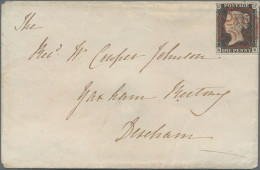 POSTAGE
ONE PENNY
The
Rev. W. Cowper Johnson
Yaxham Rectory
Dereham